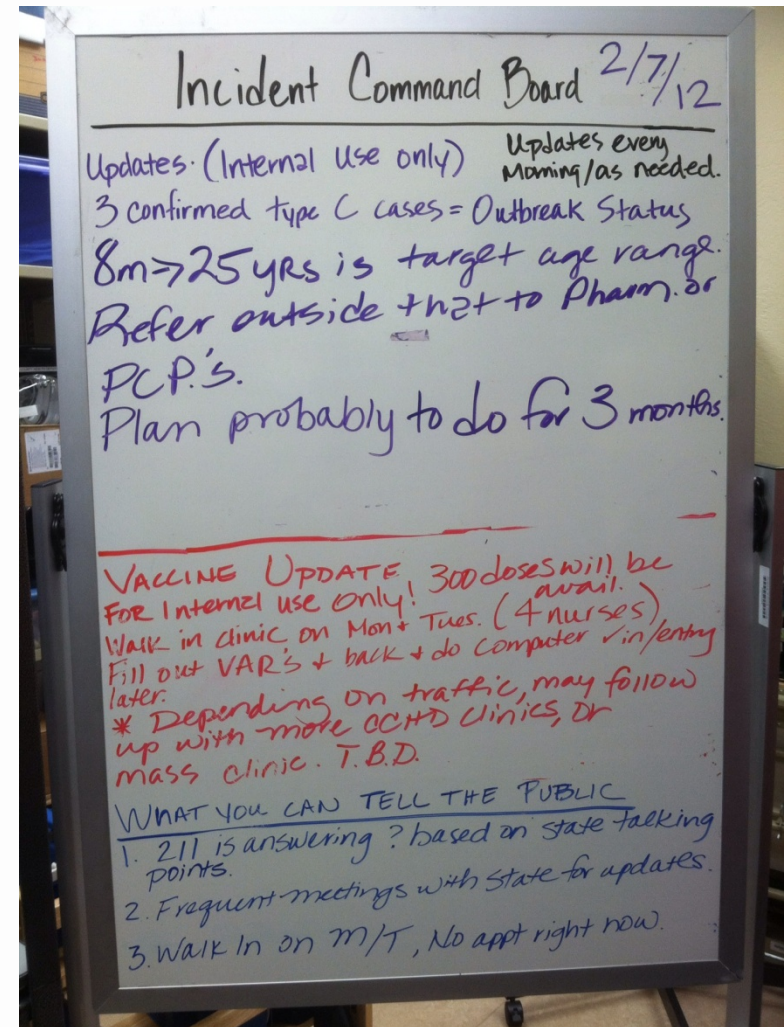 Incident Command Board 2/7/12
Updates. (Internal Use only) Updates every
Morning/as needed.
3 confirmed type C cases = Outbreak Status
8m→25 yRs is target age range.
Refer outside that to Pharm. or
PCP.'s.
Plan probably to do for 3 months.
VACCINE UPDATE 300 doses will be
FOR Internal use only! avail.
Walk in clinic on Mon + Tues. (4 nurses)
Fill out VAR's + back + do computer ✓in/entry
later.
* Depending on traffic, may follow
up with more CCHD clinics, or
mass clinic. T.B.D.
WHAT YOU CAN TELL THE PUBLIC
1. 211 is answering ? based on state talking
points.
2. Frequent meetings with State for updates.
3. Walk In on M/T, No appt right now.